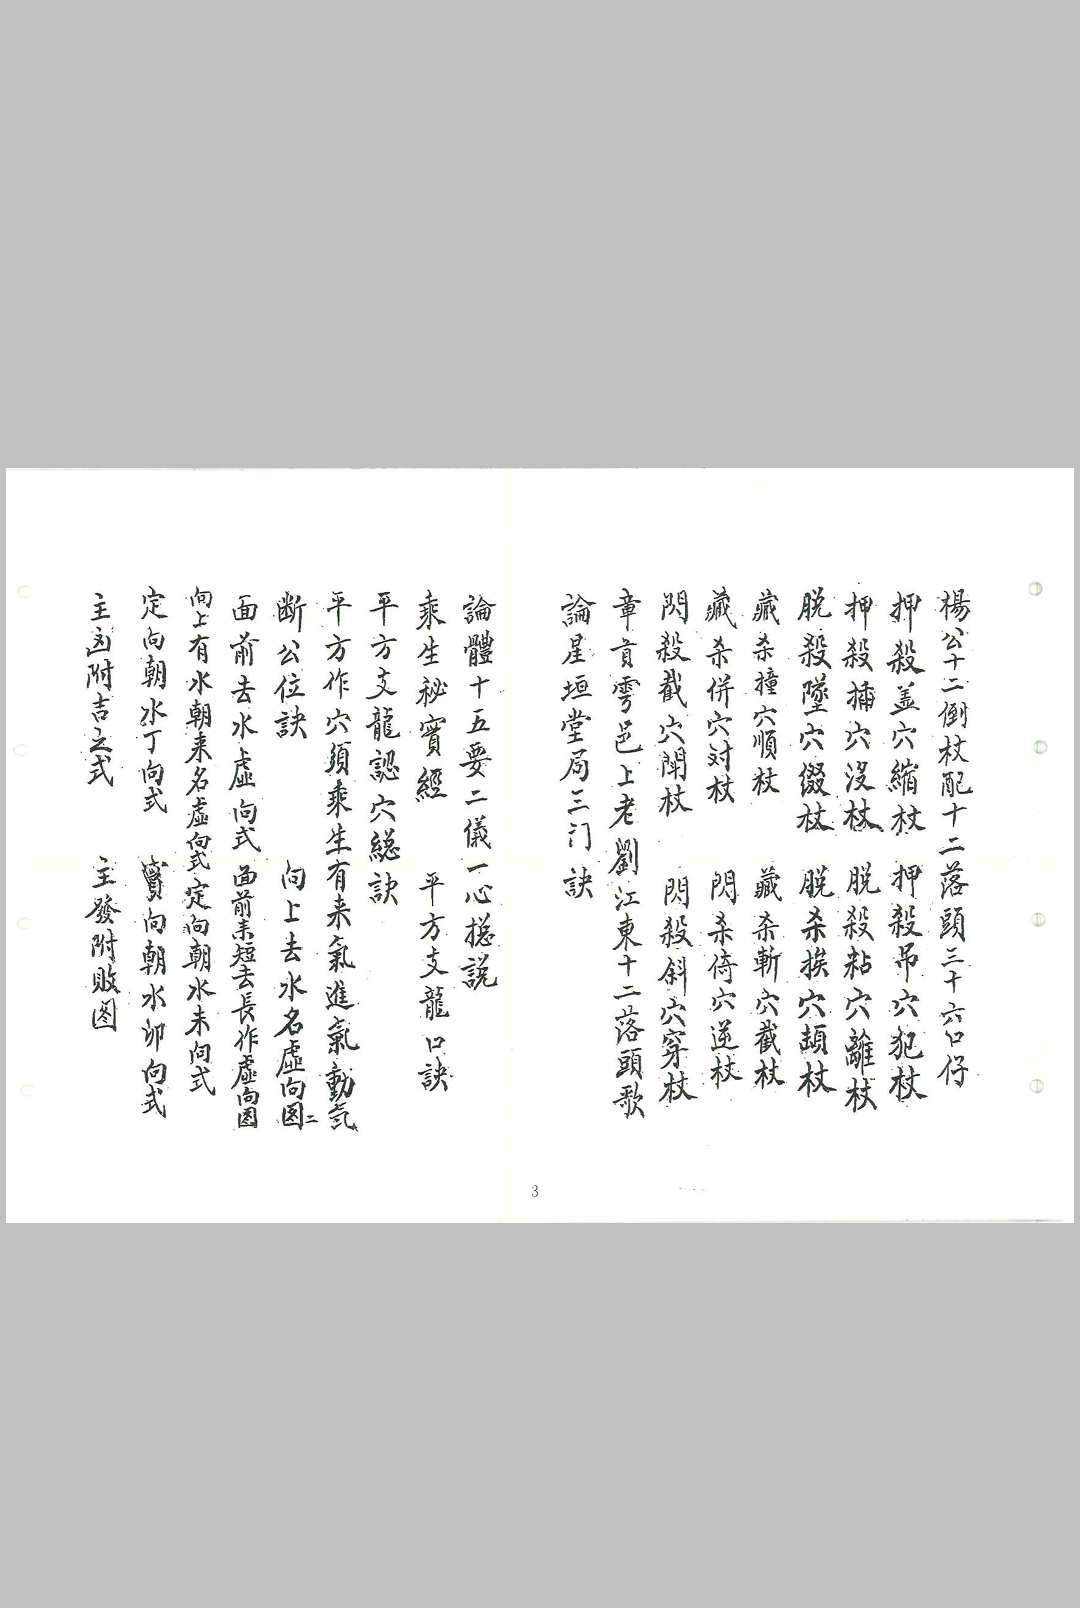 楊公十二倒杖配十二落頭三十六口仔
押殺盖穴縮杖 押殺吊穴犯杖
押殺插穴沒杖 脱殺粘穴離杖
脱殺墜穴綴杖 脱杀挨穴頓杖
藏杀撞穴順杖 藏杀斬穴截杖
藏杀併穴对杖 閃杀倚穴逆杖
閃殺截穴開杖 閃殺斜穴穿杖
章貢雩邑上老劉江東十二落頭歌
論星垣堂局三门訣
論體十五要二儀一心摠説
乘生秘寳經 平方支龍口訣
平方支龍認穴総訣
平方作穴須乘生有来氣進氣動氣
断公位訣 向上去水名虛向图二
面前去水虛向式 面前来短去長作虛向图
向上有水朝来名虛向式定向朝水未向式
定向朝水丁向式 寳向朝水卯向式
主凶附吉之式 主發附敗图
3